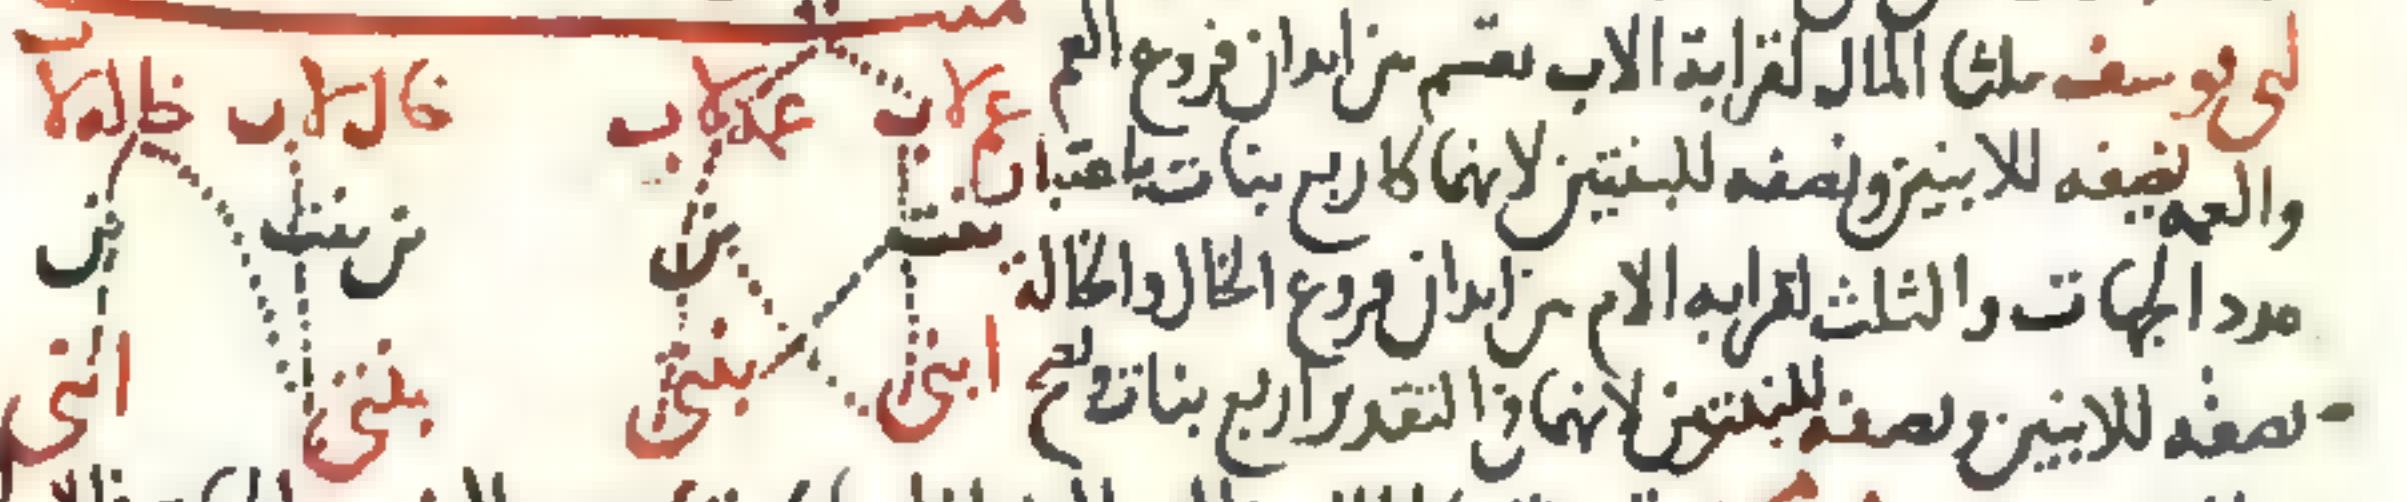 لابي يوسف ثلثا المال لقرابة الاب يقسم من ابدان فروع العم
والعمه نصفه للابنين ونصفه للبنتين لانهما كاربع بنات باعتبار
عدد الجهات والثلث لقرابه الام من ابدان فروع الخال والخالة
نصفه للابنين ونصفه للبنتين لانهما في التقدير اربع بنات وتصح
عم لاب عمة لاب خال لاب خالة لاب
بنت ابن ابن بنت ابن
ابني بنتي بنتي ابني